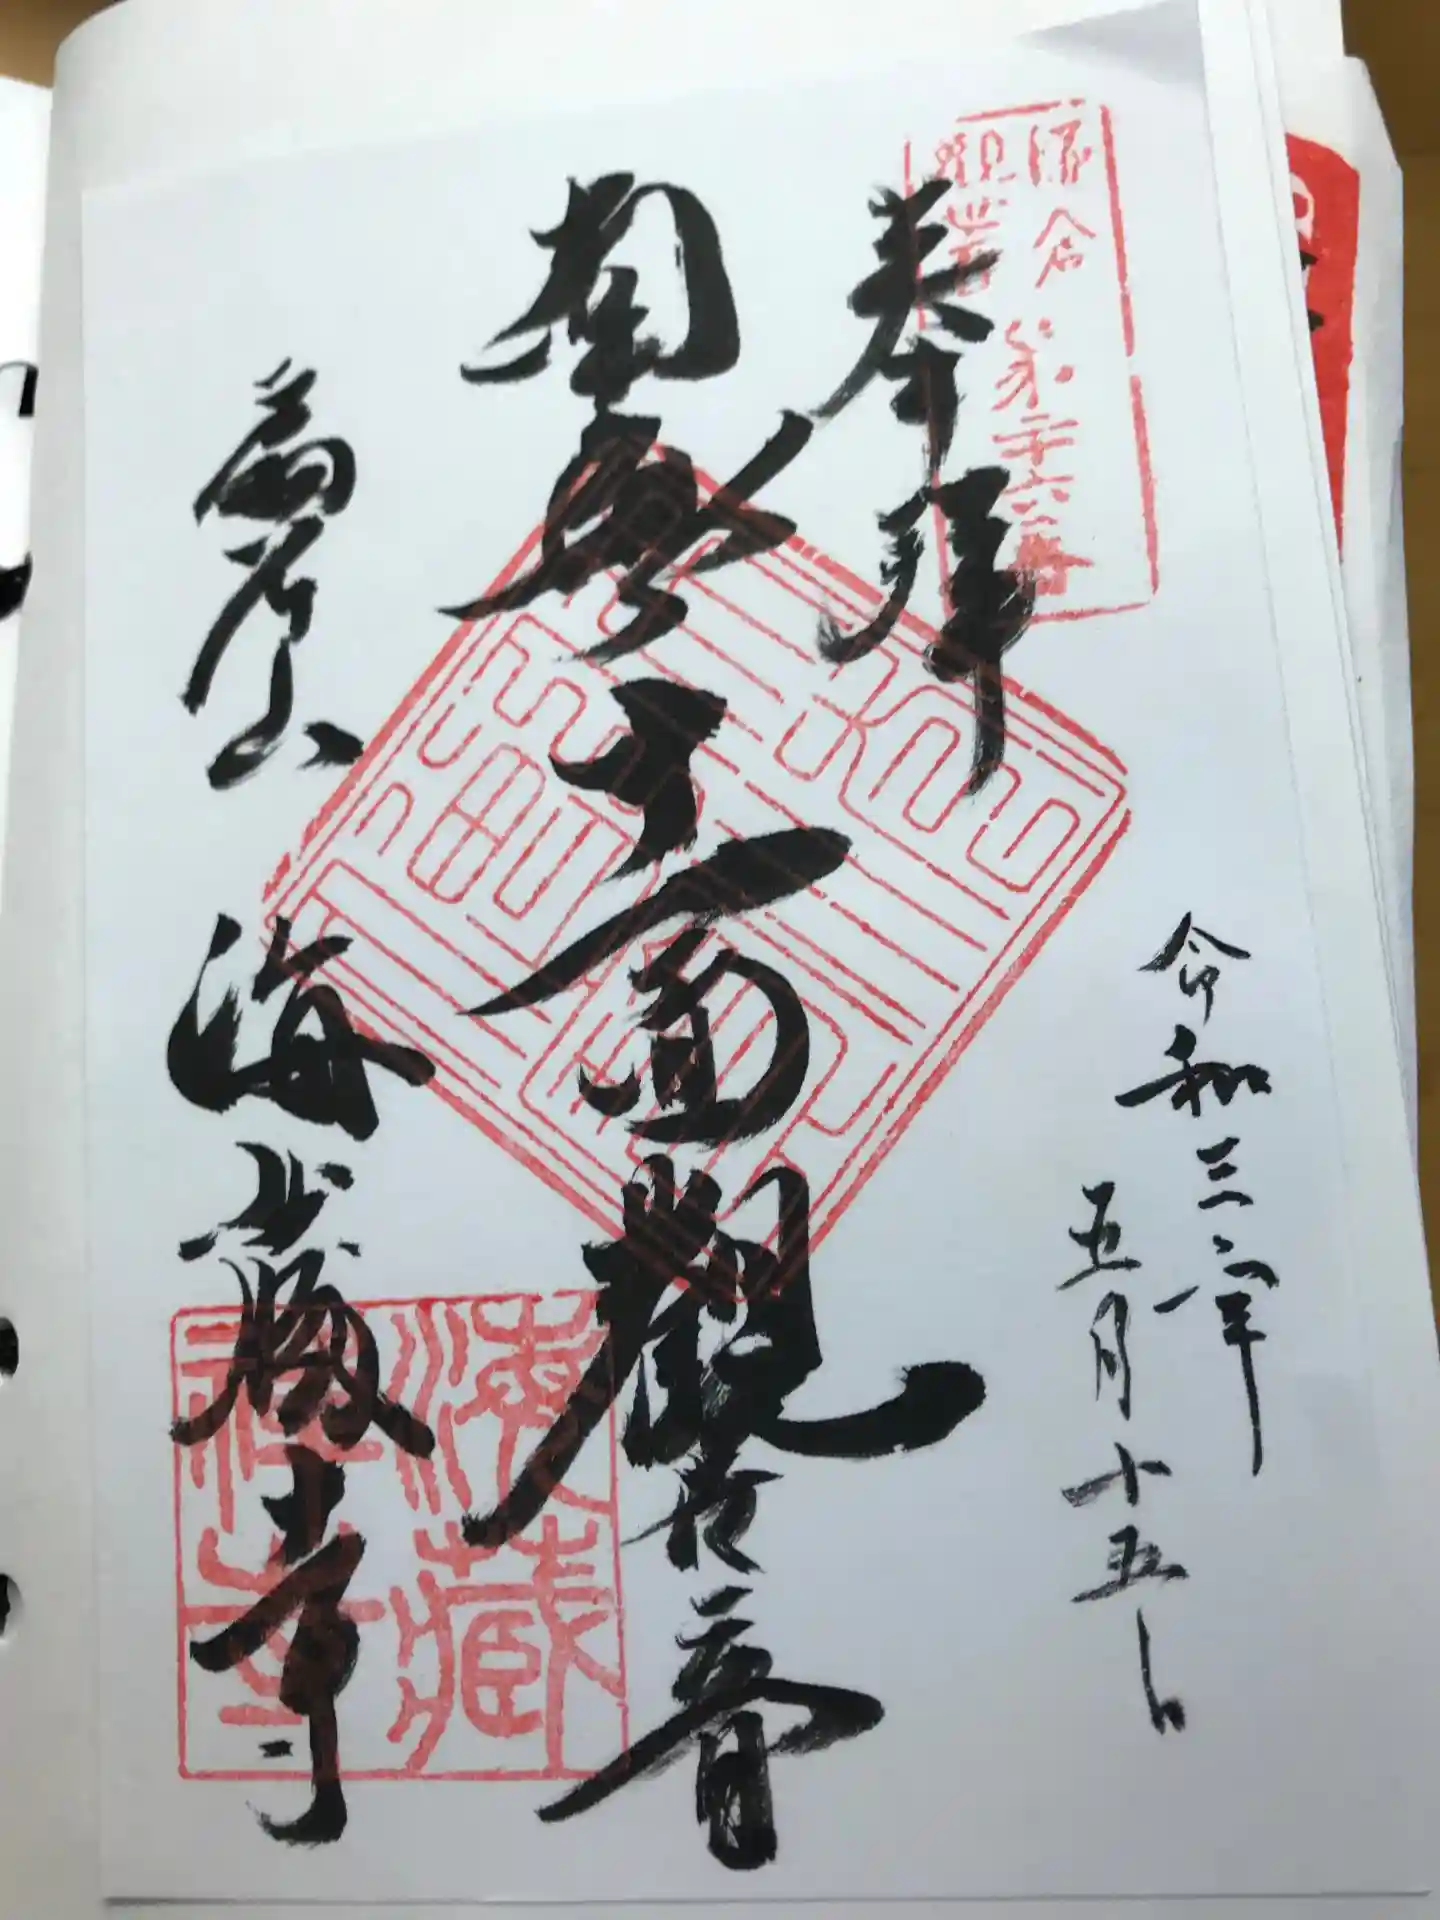 鎌倉
観世音
第二十六番
奉拝
令和三年
五月十五日
南無十一面観世音
扇谷山 海蔵寺
海藏
禅寺